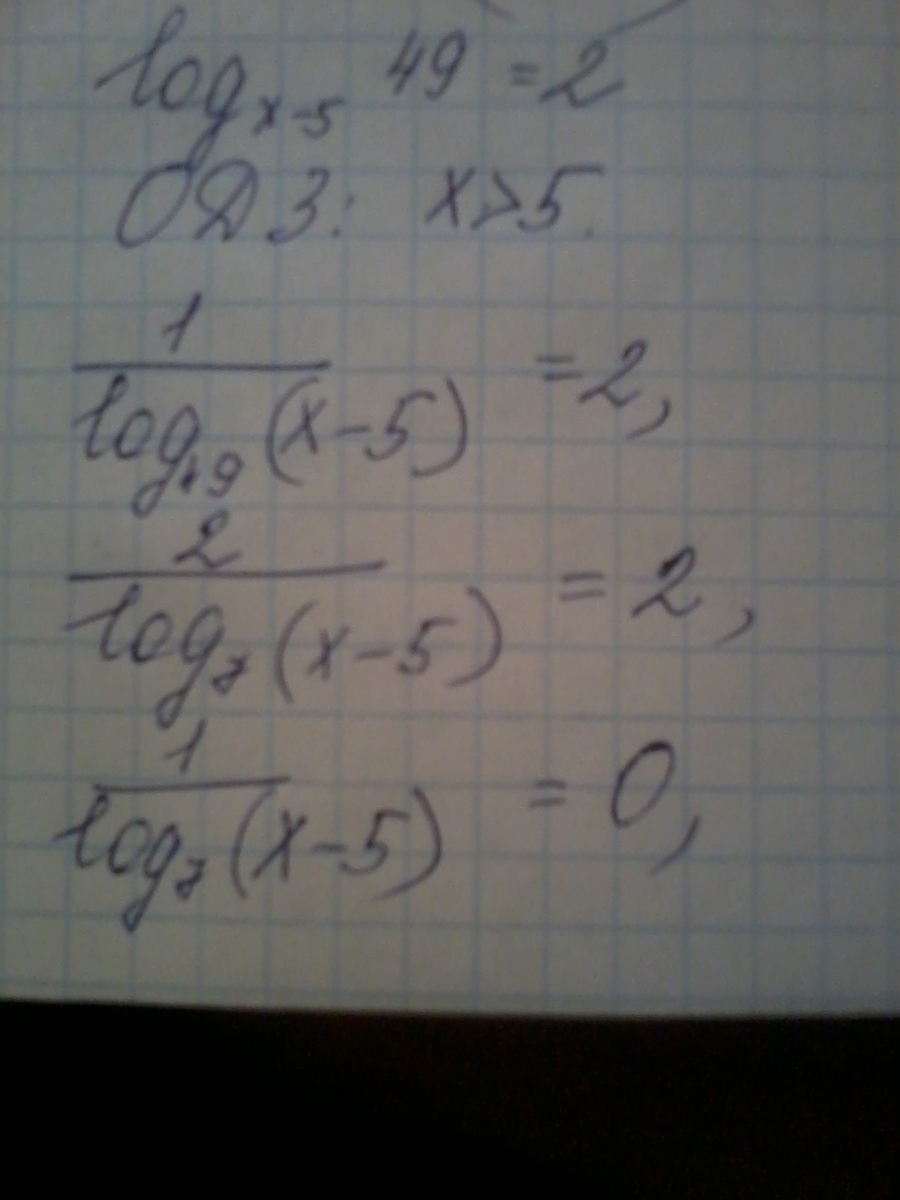 log_{x-5} 49 = 2
ОДЗ: x>5.
1/log_{49}(x-5) = 2,
2/log_7(x-5) = 2,
1/log_7(x-5) = 0,